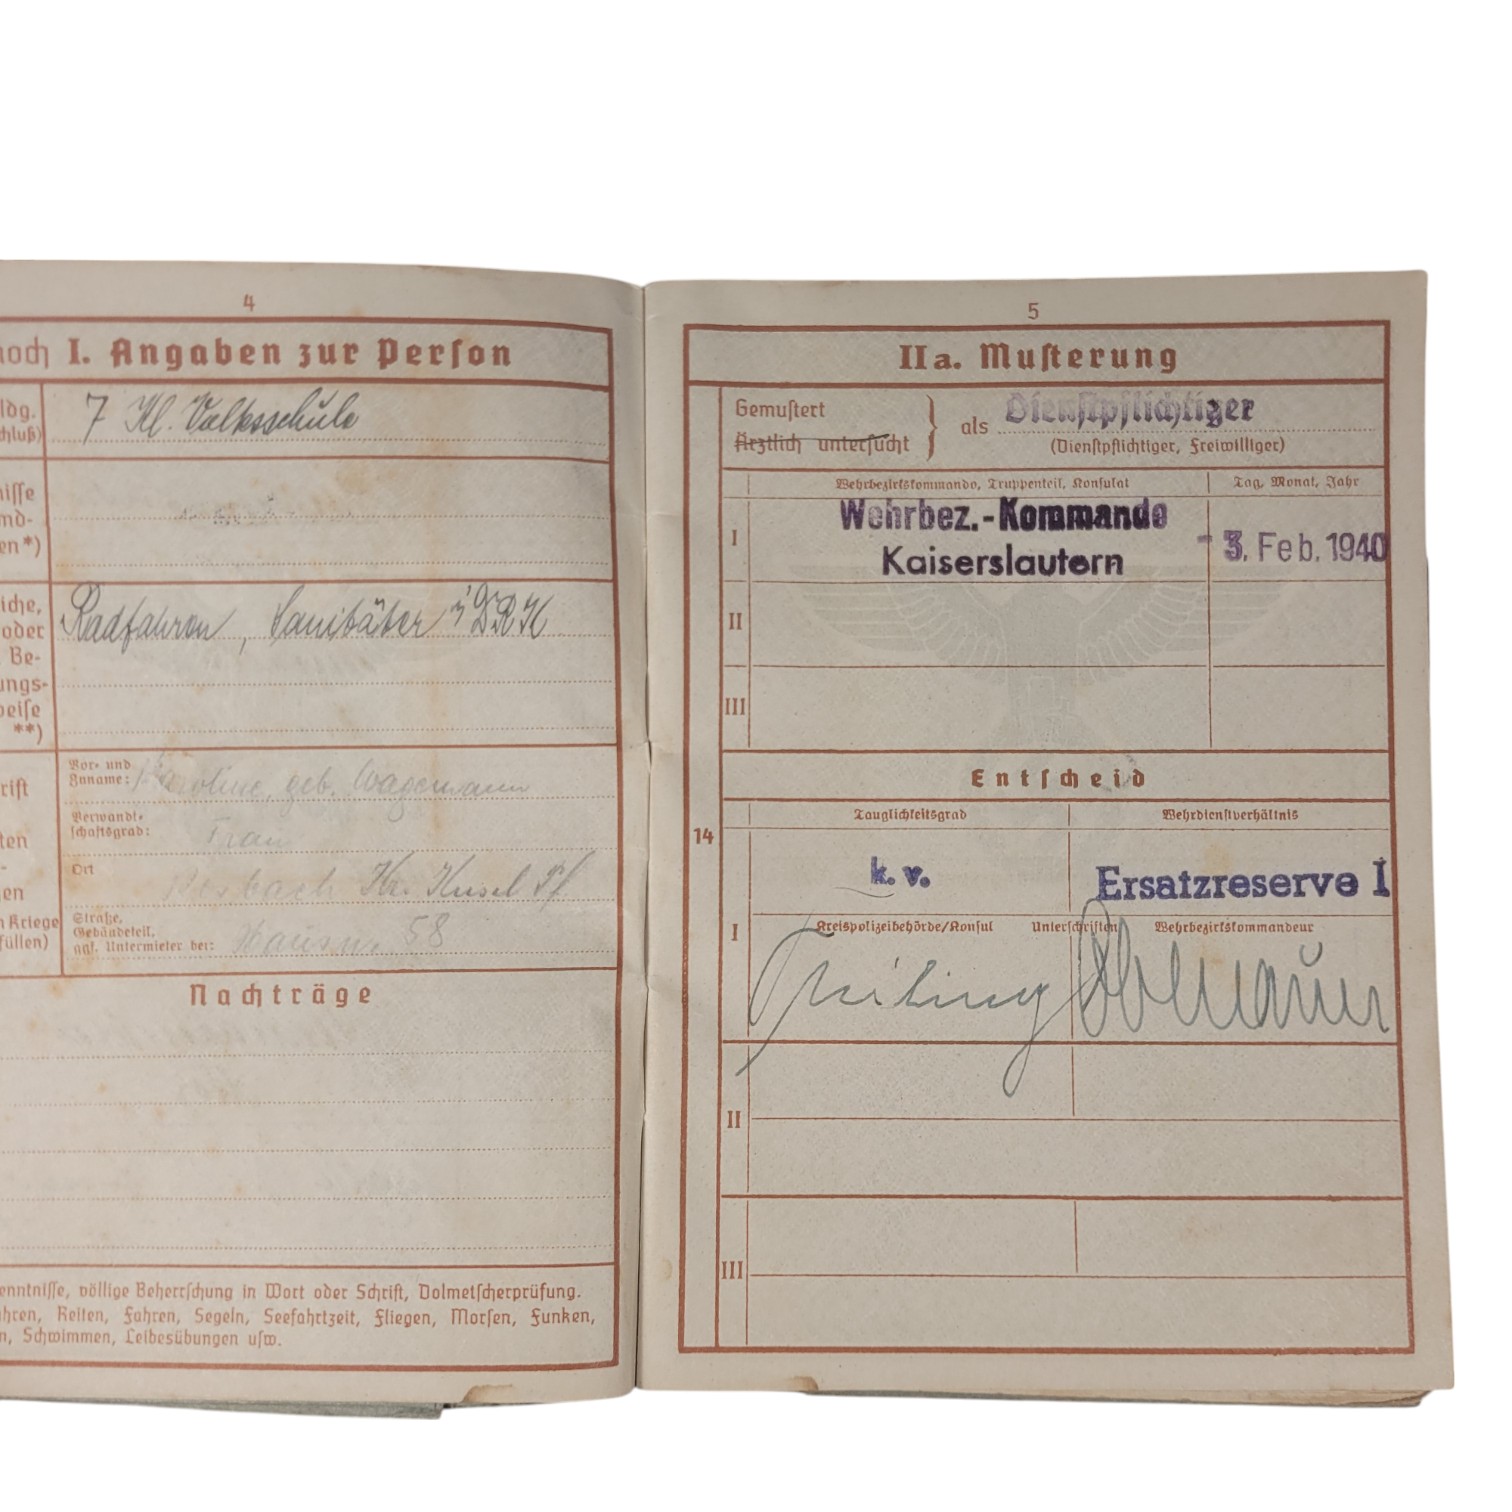 4
noch I. Angaben zur Perſon
ldg.
chluß)
7 Kl. Volksschule
niſſe
md-
en*)
iche,
oder
Be-
ungs-
weiſe
**)
Radfahren, Sanitäter i. DRK
rift
ten
-
en
n Kriege
füllen)
Vor- und
Zuname: Karoline, geb. Wagemann
Verwandt-
ſchaftsgrad: Frau
Ort
Kr. Kusel Pf.
Straße,
Gebäudeteil,
ggf. Untermieter bei: Hausnr. 58
Nachträge
enntniſſe, völlige Beherrſchung in Wort oder Schrift, Dolmetſcherprüfung.
ahren, Reiten, Fahren, Segeln, Seefahrtzeit, Fliegen, Morſen, Funken,
n, Schwimmen, Leibesübungen uſw.
5
II a. Muſterung
Gemuſtert
Ärztlich unterſucht
als Dienſtpflichtiger
(Dienſtpflichtiger, Freiwilliger)
Wehrbezirkskommando, Truppenteil, Konſulat
Tag, Monat, Jahr
I
Wehrbez.-Kommando
Kaiserslautern
- 3. Feb. 1940
II
III
Entſcheid
14
Tauglichkeitsgrad
Wehrdienſtverhältnis
k. v.
Ersatzreserve I
I
Kreispolizeibehörde/Konſul
Unterſchriften
Wehrbezirkskommandeur
II
III